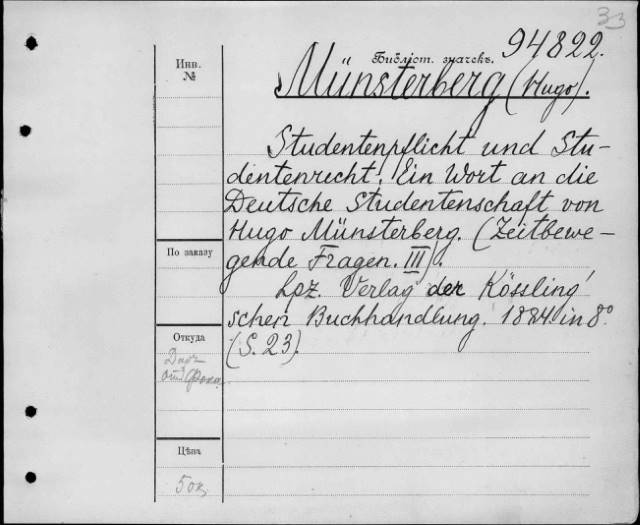 33
94822.
Библіот. значекъ.
Инв.
№
Münsterberg (Hugo).
Studentenpflicht und Stu-
dentenrecht. Ein Wort an die
Deutsche Studentenschaft von
Hugo Münsterberg. (Zeitbewe-
gende Fragen. III).
По заказу
Lpz. Verlag der Kössling'
schen Buchhandlung. 1884 in 8º.
Откуда
(S. 23).
Даръ
отъ
Цѣна
50к.